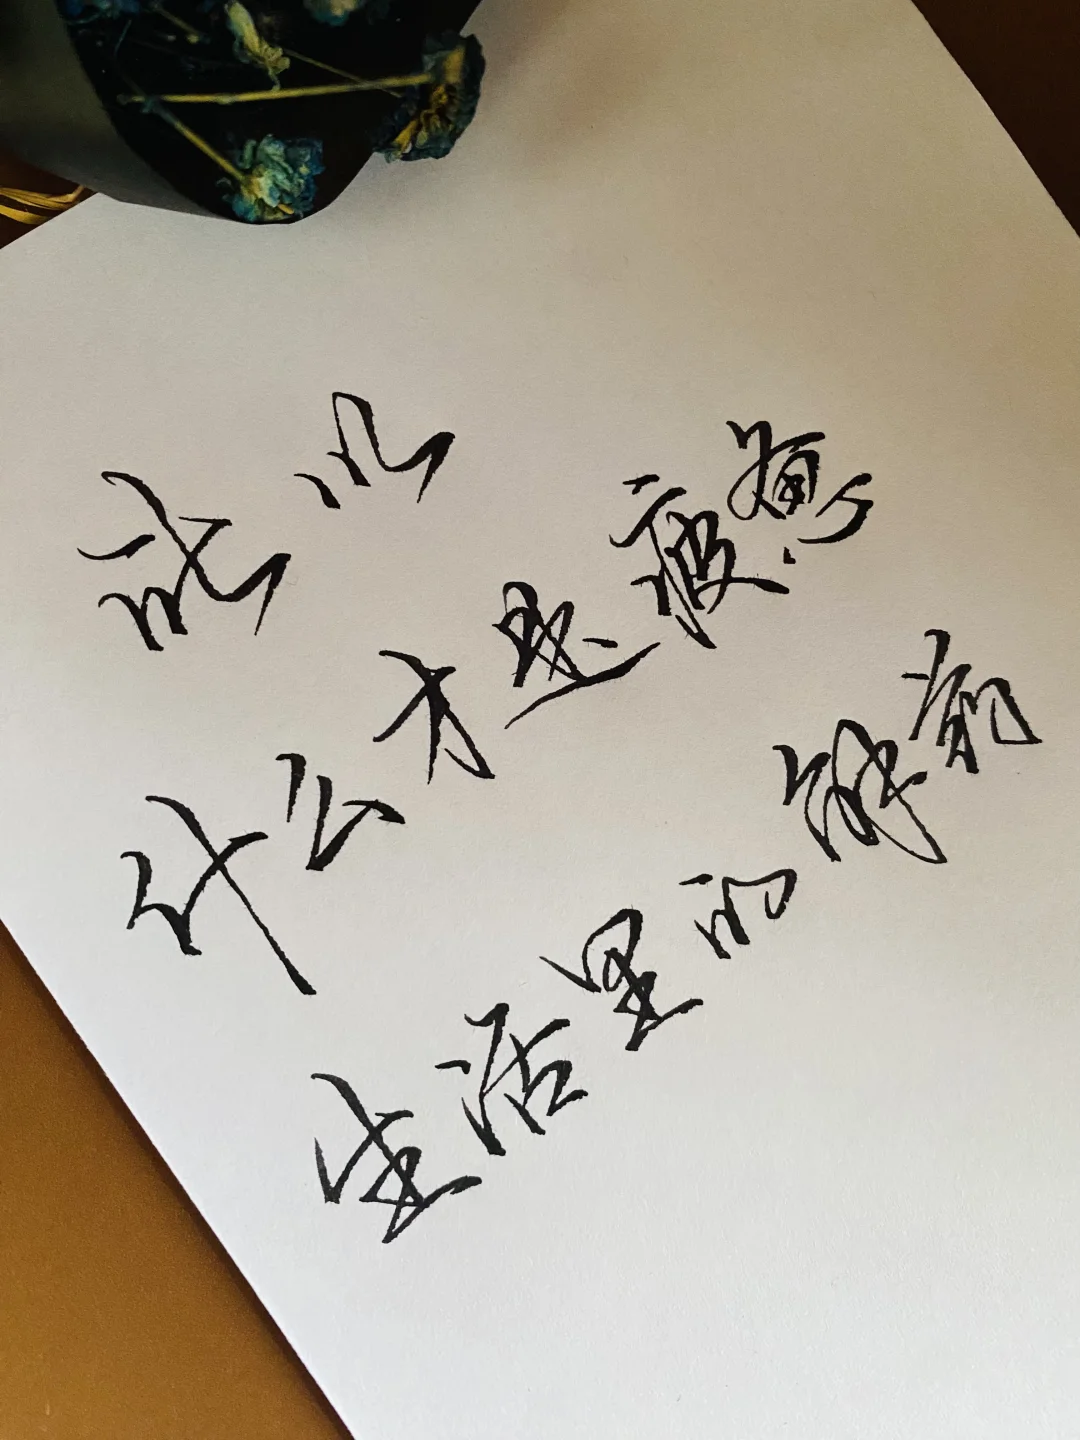 所以
什么才是疲惫
生活里的解药